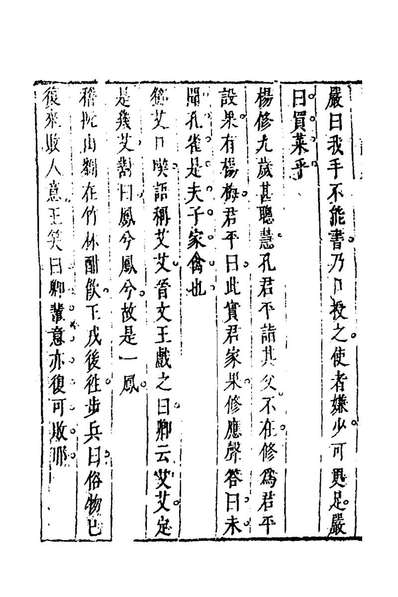 嚴曰我手不能書乃口授之使者嫌少可更足嚴
曰買菜乎
楊修九歲甚聰慧孔君平詣其父不在修為君平
設果有楊梅君平曰此實君家果修應聲答曰未
聞孔雀是夫子家禽也
鄧艾口喫語稱艾艾晉文王戲之曰卿云艾艾定
是幾艾對曰鳳兮鳳兮故是一鳳
嵇阮山劉在竹林酣飲王戎後徃步兵曰俗物已
復來敗人意王笑曰卿輩意亦復可敗耶